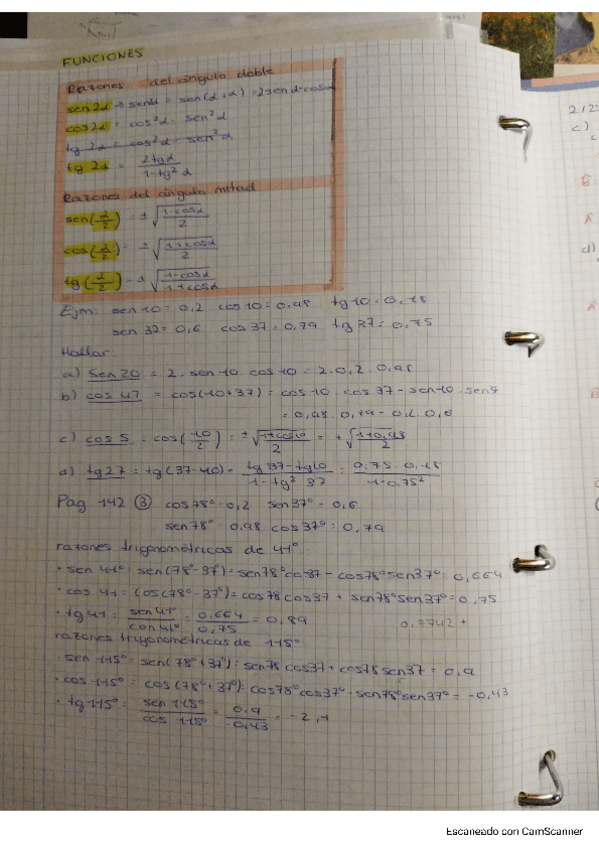 FUNCIONES
Razones del ángulo doble
sen 2α → sen2α = sen(α+α) = 2senα·cosα
cos2α = cos²α - sen²α
tg 2α = cos²α - sen²α
tg 2α = 2tgα / 1-tg²α
Razones del ángulo mitad
sen(α/2) = ± √(1-cosα / 2)
cos(α/2) = ± √(1+cosα / 2)
tg(α/2) = ± √(1-cosα / 1+cosα)
Ejm: sen 10 = 0,2 cos 10 = 0,98 tg 10 = 0,18
sen 37 = 0,6 cos 37 = 0,79 tg 37 = 0,75
Hallar:
a) sen 20 = 2 · sen 10 · cos 10 = 2 · 0,2 · 0,98
b) cos 47 = cos(10+37) = cos 10 · cos 37 - sen 10 · sen
= 0,98 · 0,79 - 0,2 · 0,6
c) cos 5 = cos(10/2) = ± √(1+cos10 / 2) = + √(1+0,98 / 2)
d) tg 27 = tg(37-10) = tg 37 - tg 10 / 1 - tg² 37 = 0,75 · 0,18 / 1-0,75²
Pag 142 ③ cos 78° = 0,2 sen 37° = 0,6
sen 78° = 0,98 cos 37° = 0,79
razones trigonométricas de 41°
· sen 41° = sen(78°-37°) = sen78° cos37 - cos78° sen37° = 0,664
· cos 41 = (cos(78°-37°) = cos 78 cos 37 + sen78° sen37° = 0,75
· tg 41 = sen 41° / con 41° = 0,664 / 0,75 = 0,89
0,7742 +
razones trigonométricas de 115°
· sen 115° = sen(78°+37°) = sen78 cos37 + cos78 sen37 = 0,9
· cos 115° = cos(78°+37°) = cos78° cos37° - sen78° sen37° = -0,43
· tg 115° = sen 115° / cos 115° = 0,9 / -0,43 = -2,1
2/2
c)
d)
Escaneado con CamScanner